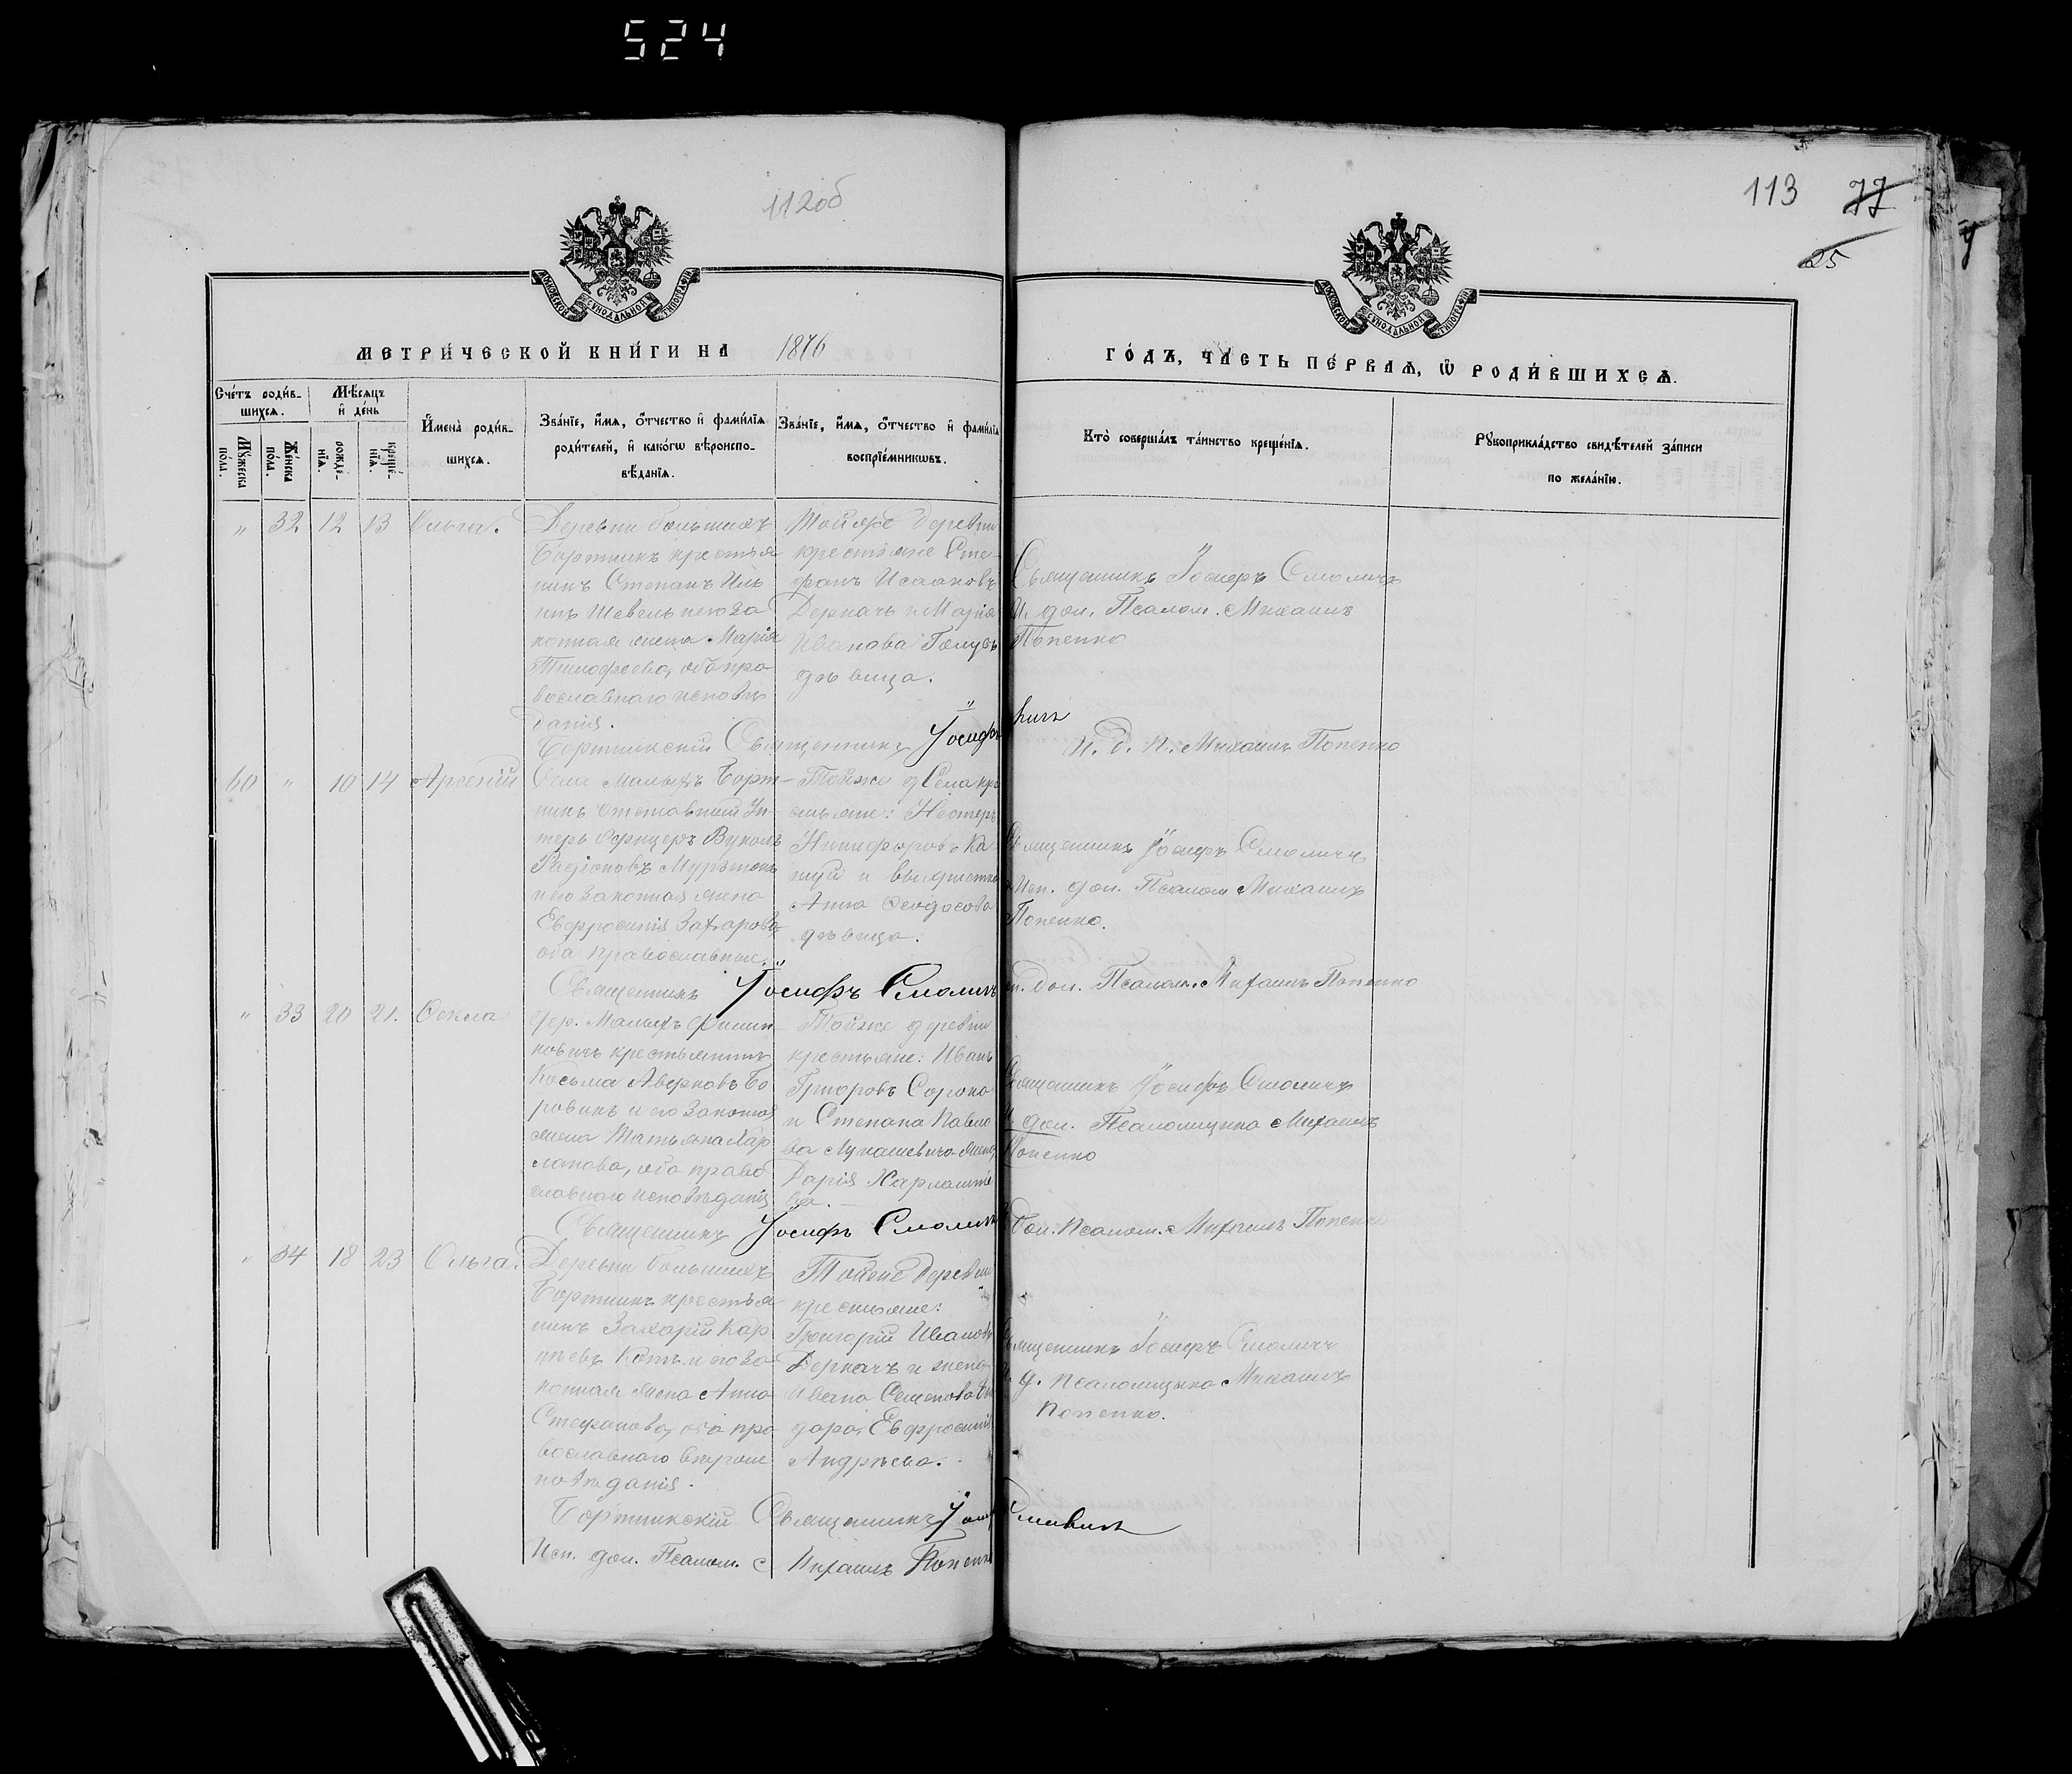 524
112об
113 77
25
МОСКОВСКОЙ СУНОДАЛЬНОЙ ТИПОГРАФІИ
МОСКОВСКОЙ СУНОДАЛЬНОЙ ТИПОГРАФІИ
МЕТРИ́ЧЕСКОЙ КНИ́ГИ НА 1876
ГО́ДЪ, ЧА́СТЬ ПЕ́РВАѦ, Ѽ РОДИ́ВШИХСѦ.
Сче́тъ роди́в-
шихсѧ.
Мѣ́сѧцъ
и҆ де́нь
Мꙋ́жеска
по́ла.
Же́нска
по́ла.
рожде́-
нїѧ.
креще́-
нїѧ.
И҆мена̀ роди́в-
шихсѧ.
Зва́нїе, и҆́мѧ, ѻ҆́тчество и҆ фами́лїѧ
роди́телей, и҆ како́гѡ вѣроиспо-
вѣ́данїѧ.
Зва́нїе, и҆́мѧ, ѻ҆́тчество и҆ фами́лїѧ
воспрїе́мникѡвъ.
Кто̀ соверша́лъ та́инство креще́нїѧ.
Рꙋкоприкла́дство свидѣ́телей за́писи
по жела́нїю.
" 32 12 13 Ольга.
Деревни большихъ
Бортникъ крестья
нинъ Степанъ Иль
инъ Шевель и его за
конная жена Марія
Тимофеева, оба пра
вославнаго исповѣ
данія.
Тойже деревни
крестьяне Сте-
фанъ Исааковъ
Деркачъ и Марія
Иванова Голубъ
дѣвица.
Священникъ Іосифъ Смоличъ
И. дол. Псалом. Михаилъ
Попенко
Бортникскій Священникъ Іосифъ
И. д. П. Михаилъ Попенко
60 " 10 14 Арсеній
Села Малыхъ Борт-
никъ отставный Ун-
теръ Офицеръ Вуколъ
Радіоновъ
и его законная жена
Евфросинія Захарова,
оба православные.
Тойже Села кре
стьяне: Несторъ
Никифоровъ Ка
и
Анна Ѳеодосова
дѣвица.
Священникъ Іосифъ Смоличъ
Исп. дол. Псалом Михаилъ
Попенко.
Священникъ Іосифъ Смоличъ
дол. Псалом. Михаилъ Попенко
" 33 20 21. Ѳекла
дер. Малыхъ Филип-
ковичъ крестьянинъ
Косьма Аверковъ Бо
ровикъ и его законная
жена Татьяна Хар
лапова, оба право
славнаго исповѣданія
Тойже деревни
крестьяне: Иванъ
Григоровъ Сорока
и Степана Павло
ва Лукашевича жена
Дарія Харлампіе
ва.
Священникъ Іосифъ Смоличъ
И. дол. Псаломщика Михаилъ
Попенко
Священникъ Іосифъ Смоличъ
дол. Псалом. Михаилъ Попенко
" 34 18 23 Ольга.
Деревни большихъ
Бортникъ крестья
нинъ Захарій Кар
пѣевъ и его за
конная жена Анна
Стефанова, оба пра
вославнаго вѣроис
повѣданія.
Тойже деревни
крестьяне:
Григорій Ивановъ
Деркачъ и жена
Ивана Семенова
Евфросинія
Андрѣева.
Священникъ Іосифъ Смоличъ
И. д. псаломщика Михаилъ
Попенко.
Бортникскій Священникъ Іосифъ Смоличъ
Исп. дол. Псалом. Михаилъ Попенко